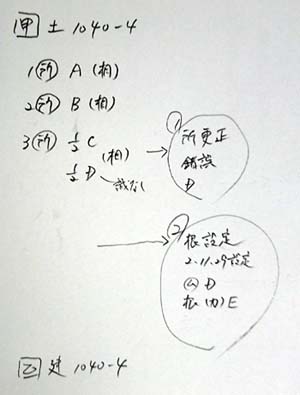 甲 土 1040-4
1 所 A (相)
2 所 B (相)
3 所 1/2 C
(相)
1/2 D
識なし
①
所更正
錯誤
D
②
根設定
2.11.29設定
D
根(力)E
乙 建 1040-4